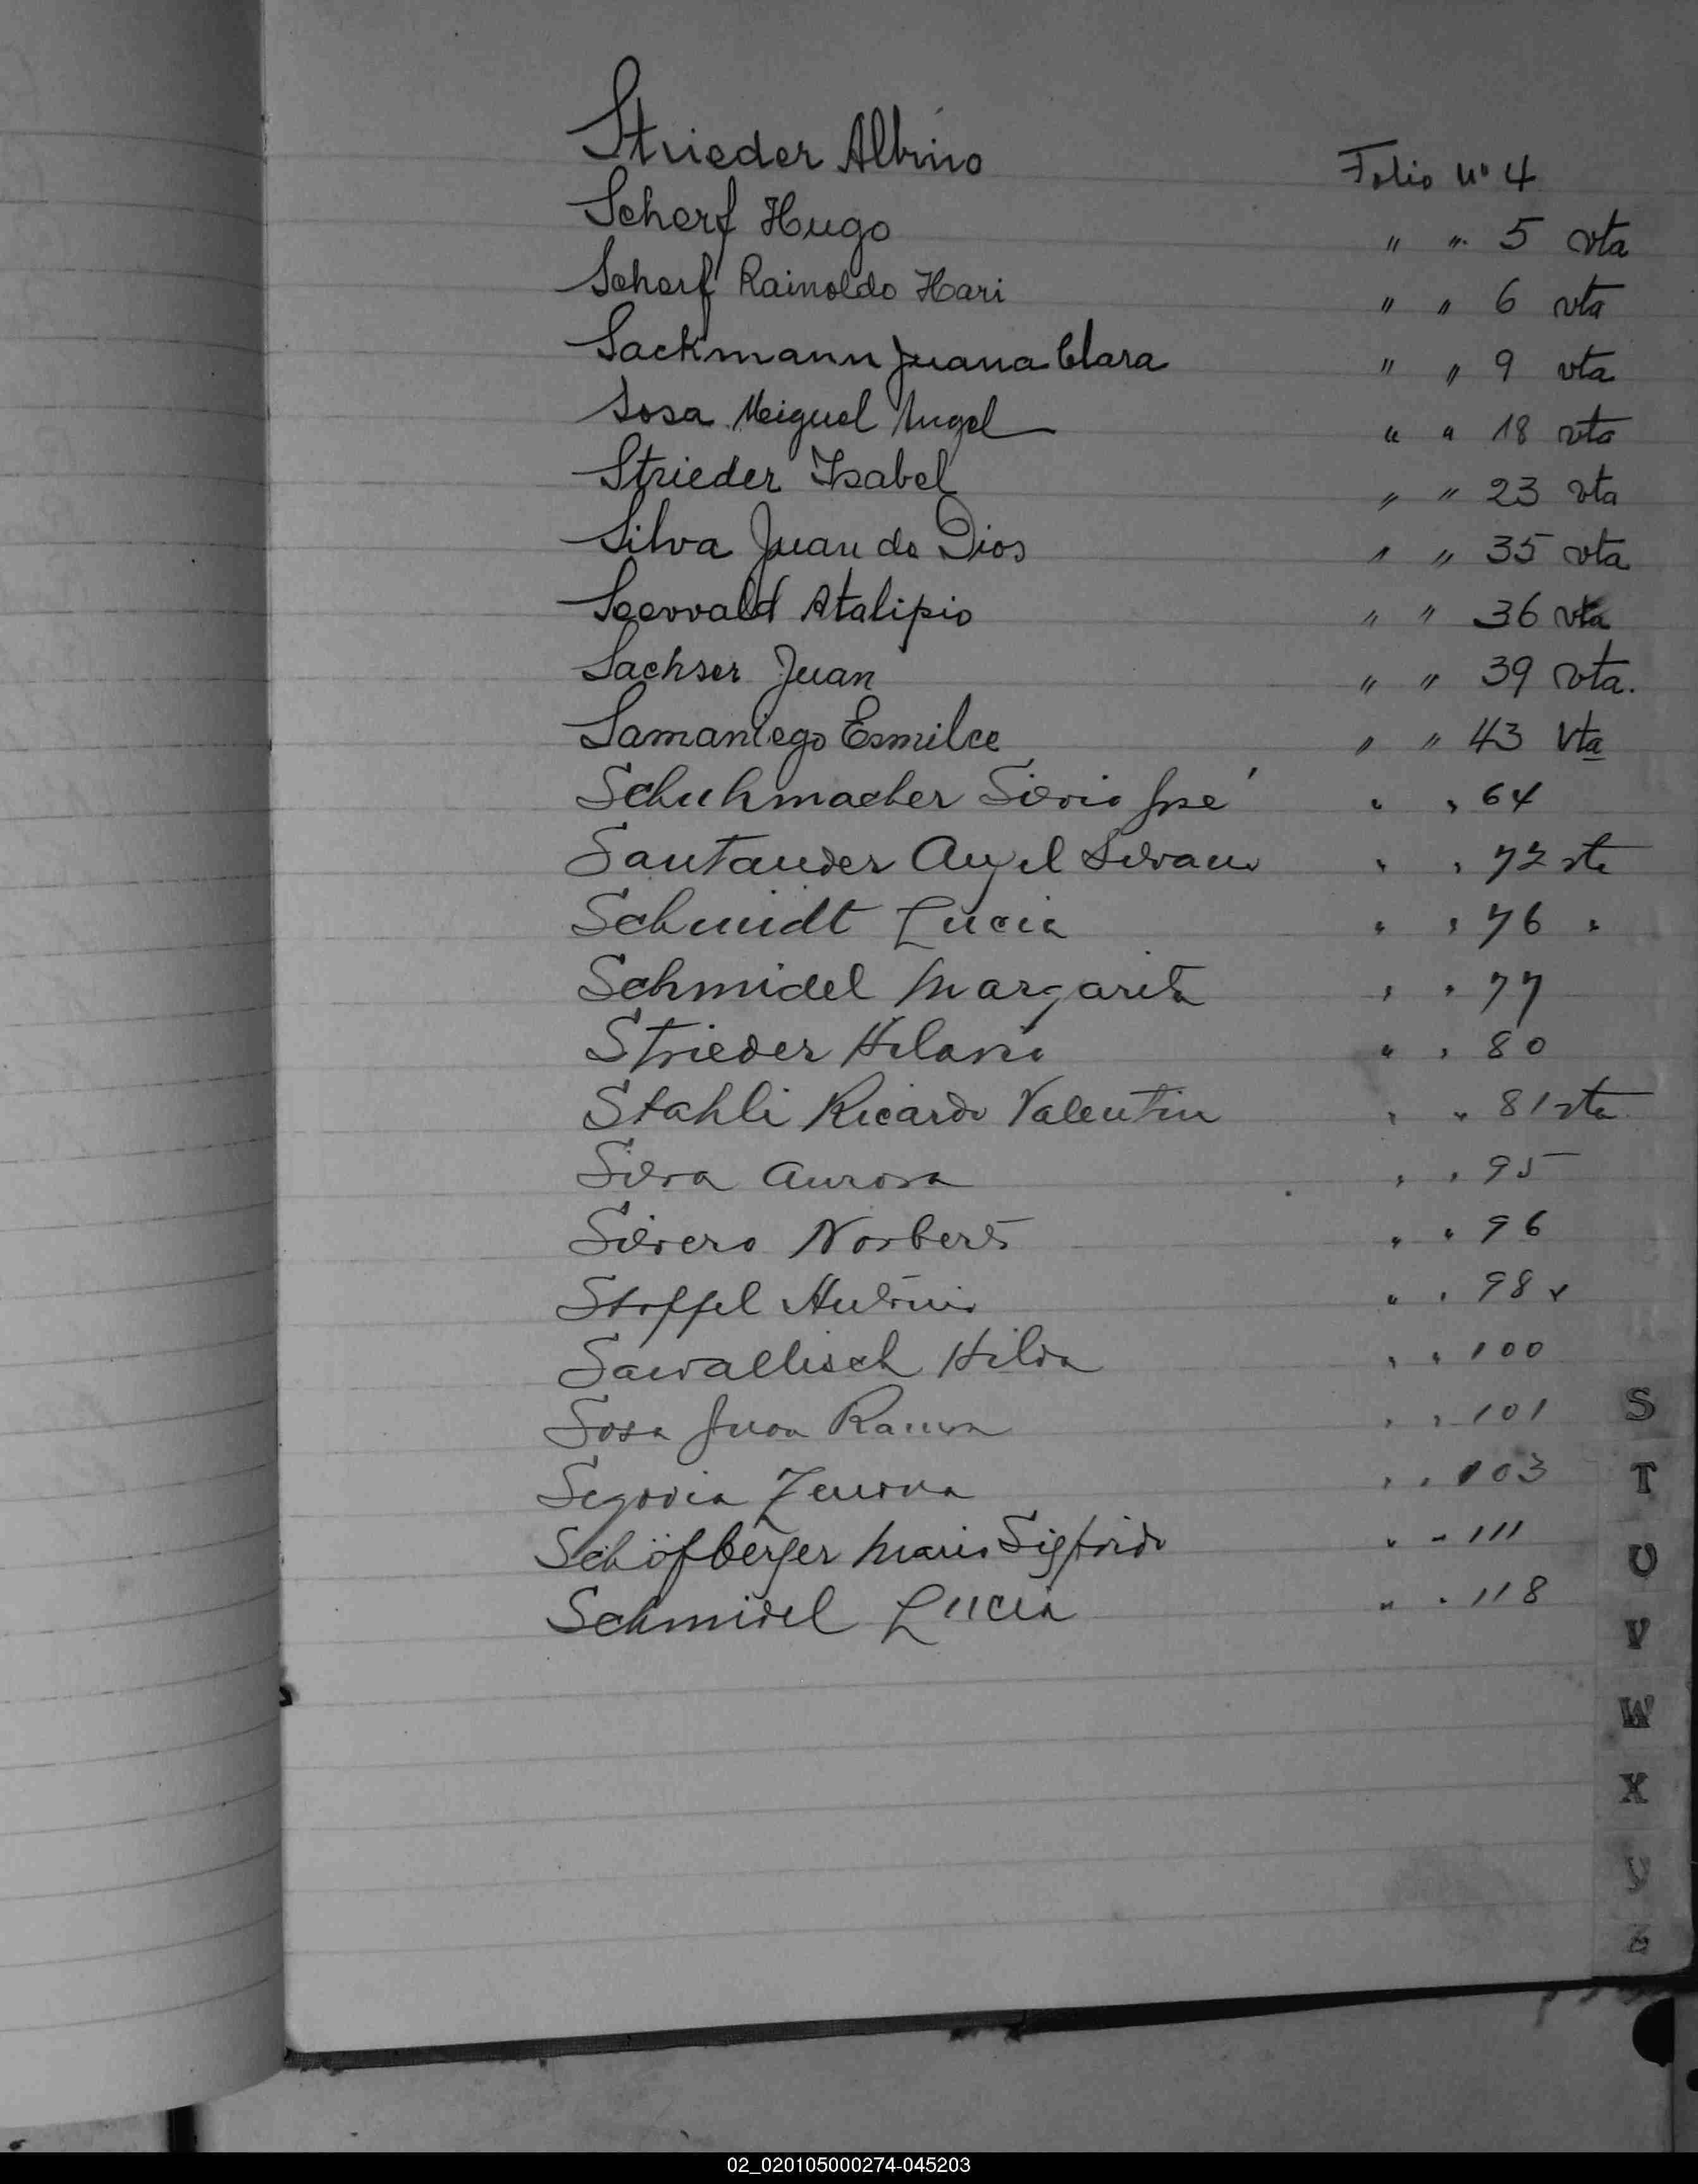 Strieder Albino Folio Nº 4
Scherf Hugo " " 5 vta
Scherf Rainoldo Hari " " 6 vta
Sackmann Juana Clara " " 9 vta
Sosa Meiguel Angel " " 18 vta
Strieder Isabel " " 23 vta
Silva Juan de Dios " " 35 vta
Seewald Atalipio " " 36 vta
Sachser Juan " " 39 vta.
Samaniego Esmilce " " 43 Vta
Schuhmacher Silvio José " " 64
Santander Angel Silvano " " 72 vta
Schmidt Lucia " " 76 "
Schmidel Margarita " " 77
Strieder Hilario " " 80
Stahli Ricardo Valentin " " 81 vta
Silva Aurora " " 95
Silvero Norberto " " 96
Stoffel " " 98 v
Sawallisch Hilda " " 100
Sosa Juan Ramon " " 101
Segovia Zenona " " 103
Schöfberger Mario Sigfrido " " 111
Schmidel Lucia " " 118
S
T
U
V
W
X
Y
Z
02_020105000274-045203